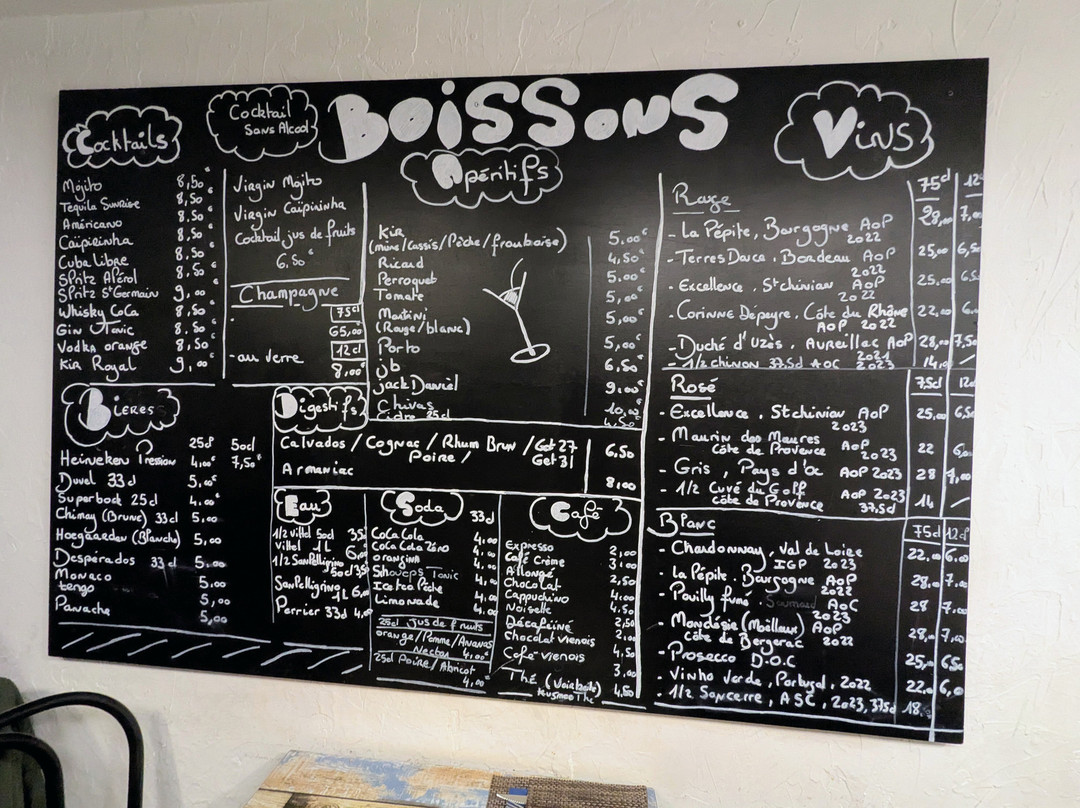 BOiSSONS
Cocktails
Mojito 8,50€
Tequila Sunrise 8,50€
Américano 8,50€
Caïpirinha 8,50€
Cuba Libre 8,50€
SPritz APérol 8,50€
SPritz St Germain 9,00€
Whisky Coca 8,50€
Gin Tonic 8,50€
Vodka orange 8,50€
Kir Royal 9,00€
Cocktail
Sans Alcool
Virgin Mojito
Virgin Caïpirinha
Cocktail jus de fruits
6,50€
Champagne
75cl
65,00
- au verre 12cl
8,00€
Apéritifs
Kir
(mûre/cassis/Pêche/framboise) 5,00€
Ricard 4,50€
Perroquet 5.00€
Tomate 5,00€
Martini
(Rouge/blanc) 5,00€
Porto 5,00€
jb 6,50€
jack Daniel 9,00€
Chivas 10,00€
Cidre 25cl 4,50
Bières
25cl 50cl
Heineken Pression 4,00€ 7,50€
Duvel 33cl 5,00€
Superbock 25cl 4,00€
Chimay (Brune) 33cl 5,00
Hoegaarden (Blanche) 5,00
Desperados 33cl 5,00
Monaco 5,00
tango 5,00
Panaché 5,00
Digestifs
Calvados / Cognac / Rhum Brun / Get 27
Poire / Get 31 6,50
Armaniac 8,00
Eau
1/2 Vittel 50cl 3,5
Vittel 1L
1/2 San Pellegrino
50cl 3,50
San Pellegrino
1L
Perrier 33cl
Soda
33cl
Coca Cola 4,00
Coca Cola Zéro 4,00
Orangina 4,00
Shoueps Tonic 4,00
Ice tea Pêche 4,00
Limonade 4,00
25cl jus de fruits
orange/Pomme/Ananas
Nectar 4,00€
25cl Poire/Abricot
4,00€
Café
Expresso 2,00
Café Crème 3,00
Allongé 2,50
Chocolat 4,00
Cappuchino 4,50
Noisette 2,50
Décaféiné 2,00
Chocolat Vienois 4,50
Café Vienois 3,00
Thé (Voir boite) 4,50
Vins
Rouge 75cl 12
- La Pépite, Bourgogne AoP
2022 28,00 7,0
- Terres Douce, Bordeau AoP
2022 25,00 6,5
- Excellence, St chinian AoP
2022 25,00 6,5
- Corinne Depeyre, Côte du Rhône
AoP 2022 22,00 6,
- Duché d'Uzès, Aureillac AoP
2021 28,00 7,50
- 1/2 chinon 37,5d AOC 2023 14,00
Rosé 75cl 12c
- Excellence, St chinian AoP
2023 25,00 6,5
- Maurin des Maures
Côte de Provence AoP
2023 22 6,00
- Gris, Pays d'oc AoP 2023 28 7,00
- 1/2 Cuvé du Golf
côte de Provence AoP 2023
37,5d 14
Blanc 75cl 12cl
- Chardonnay, Val de Loire
IGP 2023 22,00 6,00
- La Pépite, Bourgogne AoP
2022 28,00 7,
- Pouilly fumé, AoC
2023 28 7,
- Mondésie (Moëlleux) AoP
Côte de Bergerac 2022 28,00 7,
- Prosecco D.O.C 25,00 6,50
- Vinho Verde, Portugal, 2022 22,00 6,
- 1/2 Sancerre, ASC, 2023, 37,5d 18,